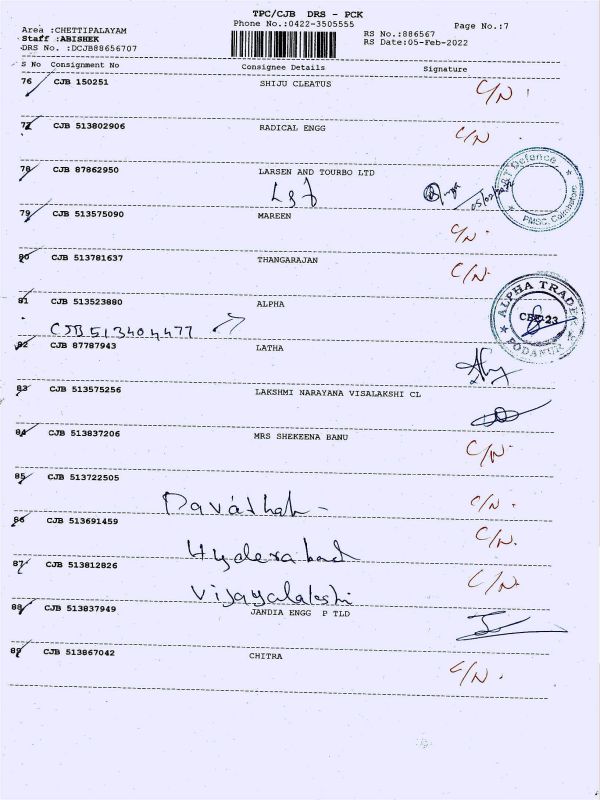 TPC/CJB DRS - PCK
Phone No.:0422-3505555
Page No.:7
Area :CHETTIPALAYAM
Staff :ABISHEK
DRS No. :DCJB88656707
RS No.:886567
RS Date:05-Feb-2022
S No Consignment No Consignee Details Signature
76 CJB 150251 SHIJU CLEATUS C/N
77 CJB 513802906 RADICAL ENGG C/N
78 CJB 87862950 LARSEN AND TOURBO LTD
L&T
L&T Defence
PMSC, Coimbatore
79 CJB 513575090 MAREEN C/N
80 CJB 513781637 THANGARAJAN C/N
81 CJB 513523880 ALPHA
CJB 513404477
ALPHA TRADE
PODANUR
82 CJB 87787943 LATHA
83 CJB 513575256 LAKSHMI NARAYANA VISALAKSHI CL
84 CJB 513837206 MRS SHEKEENA BANU C/N
85 CJB 513722505 C/N
86 CJB 513691459 C/N
Hyderabad
87 CJB 513812826 C/N
Vijayalakshi
88 CJB 513837949 JANDIA ENGG P TLD
89 CJB 513867042 CHITRA C/N